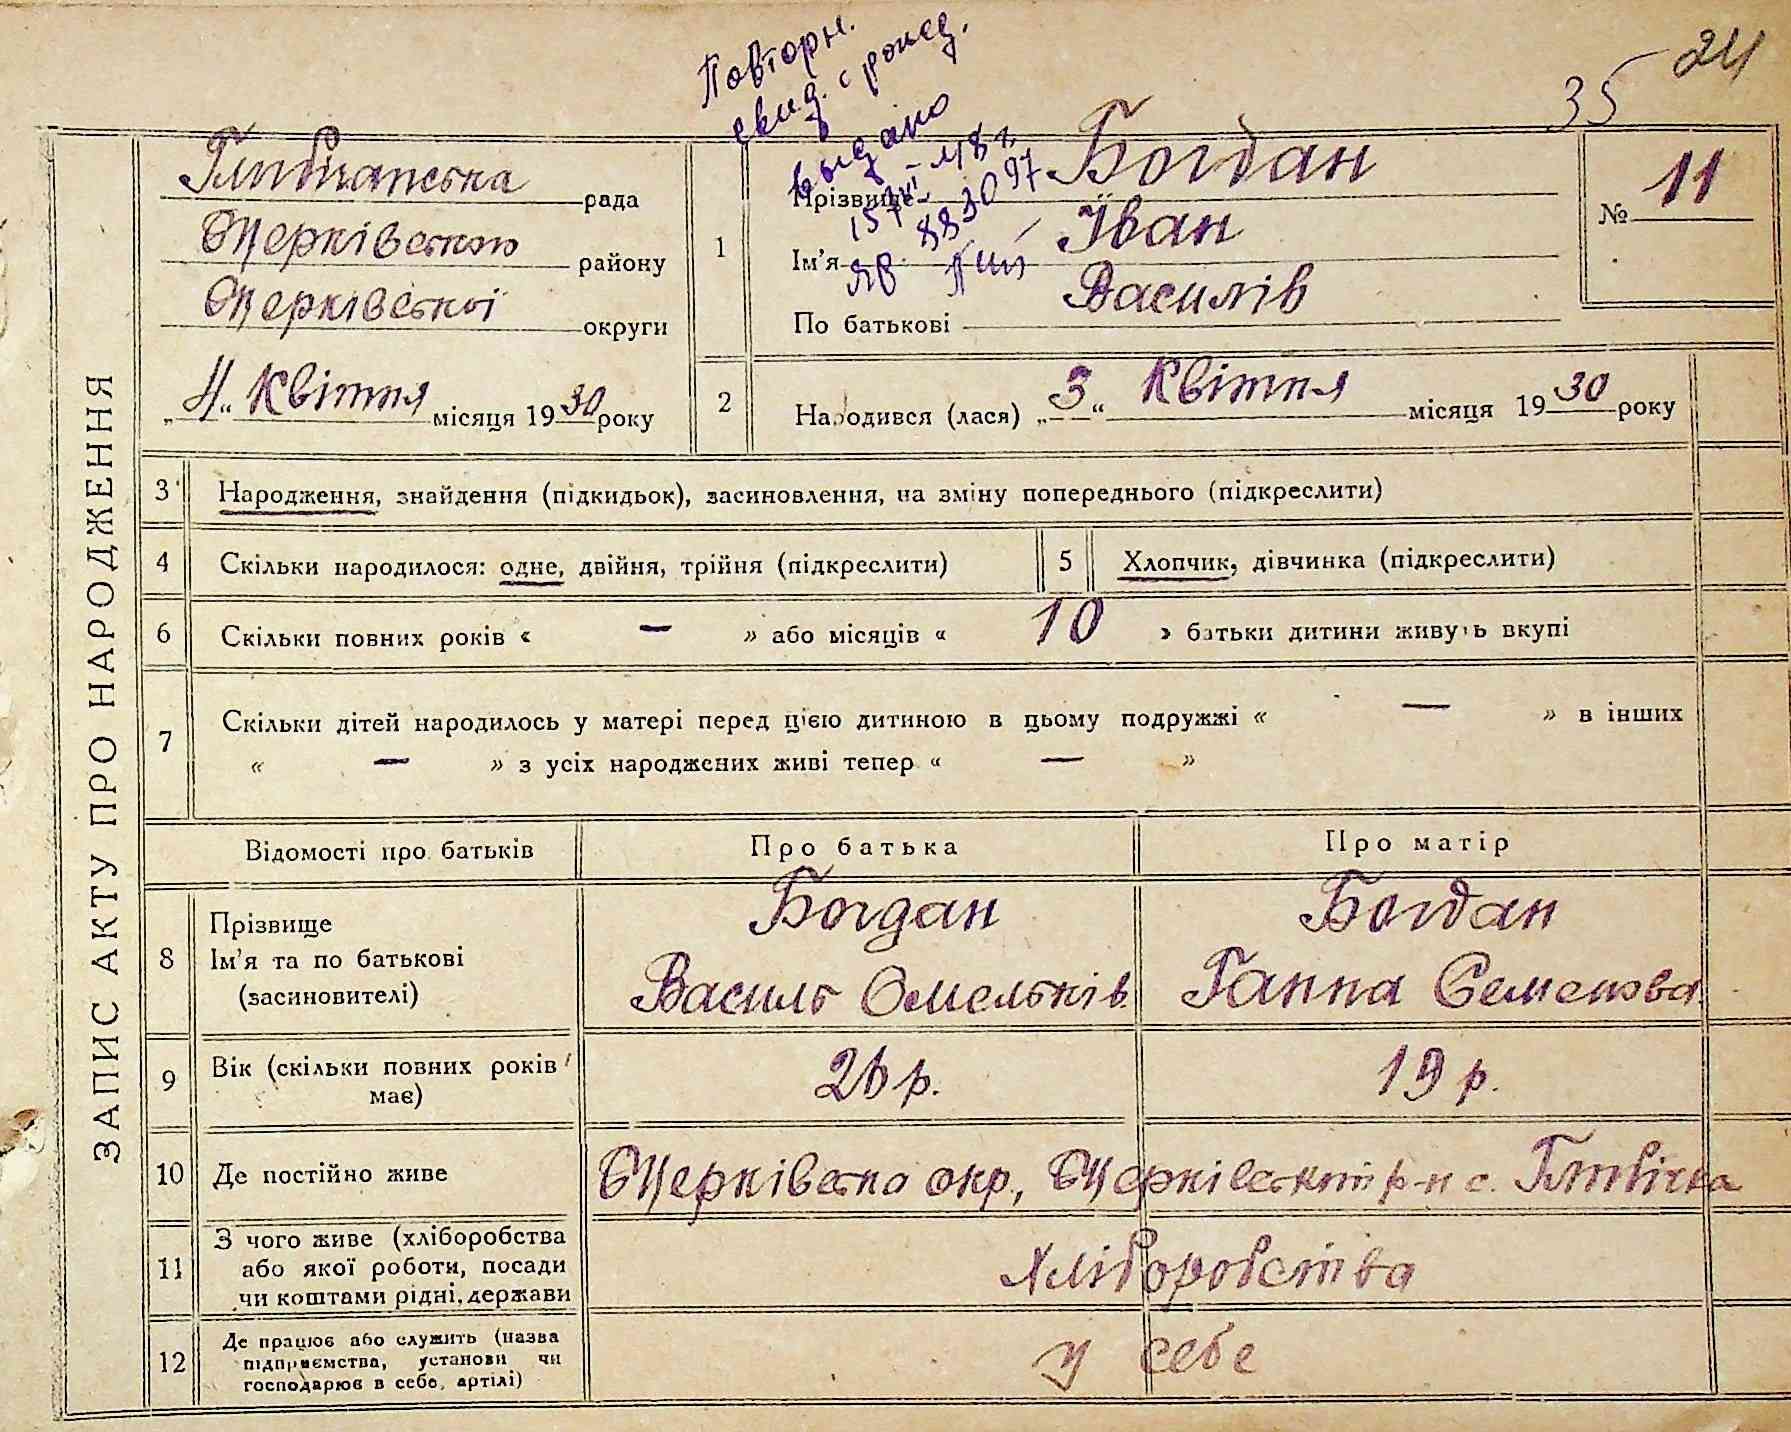 35 24
Повторн.
свид. о рожд.
выдано
15/VII-48 г
ЯВ 883097
ЗАПИС АКТУ ПРО НАРОДЖЕННЯ
Глибічанська рада
Бʼ Черківського району
Черківської округи
„4“ Квітня місяця 1930 року
1 Прізвище Богдан
Ім’я Іван
По батькові Василів
№ 11
2 Народився (лася) „3“ Квітня місяця 1930 року
3 Народження, знайдення (підкидьок), засиновлення, на зміну попереднього (підкреслити)
4 Скільки народилося: одне, двійня, трійня (підкреслити) 5 Хлопчик, дівчинка (підкреслити)
6 Скільки повних років « — » або місяців « 10 » батьки дитини живуть вкупі
7 Скільки дітей народилось у матері перед цією дитиною в цьому подружжі « — » в інших
« — » з усіх народжених живі тепер « — »
Відомості про батьків Про батька Про матір
8 Прізвище Богдан Богдан
Ім’я та по батькові Василь Омельків Ганна Семенова
(засиновителі)
9 Вік (скільки повних років має) 26 р. 19 р.
10 Де постійно живе окр., р-н с. Глибічка
11 З чого живе (хліборобства
або якої роботи, посади Хліборобства
чи коштами рідні, держави
12 Де працює або служить (назва
підприємства, установи чи у себе
господарює в себе, артілі)